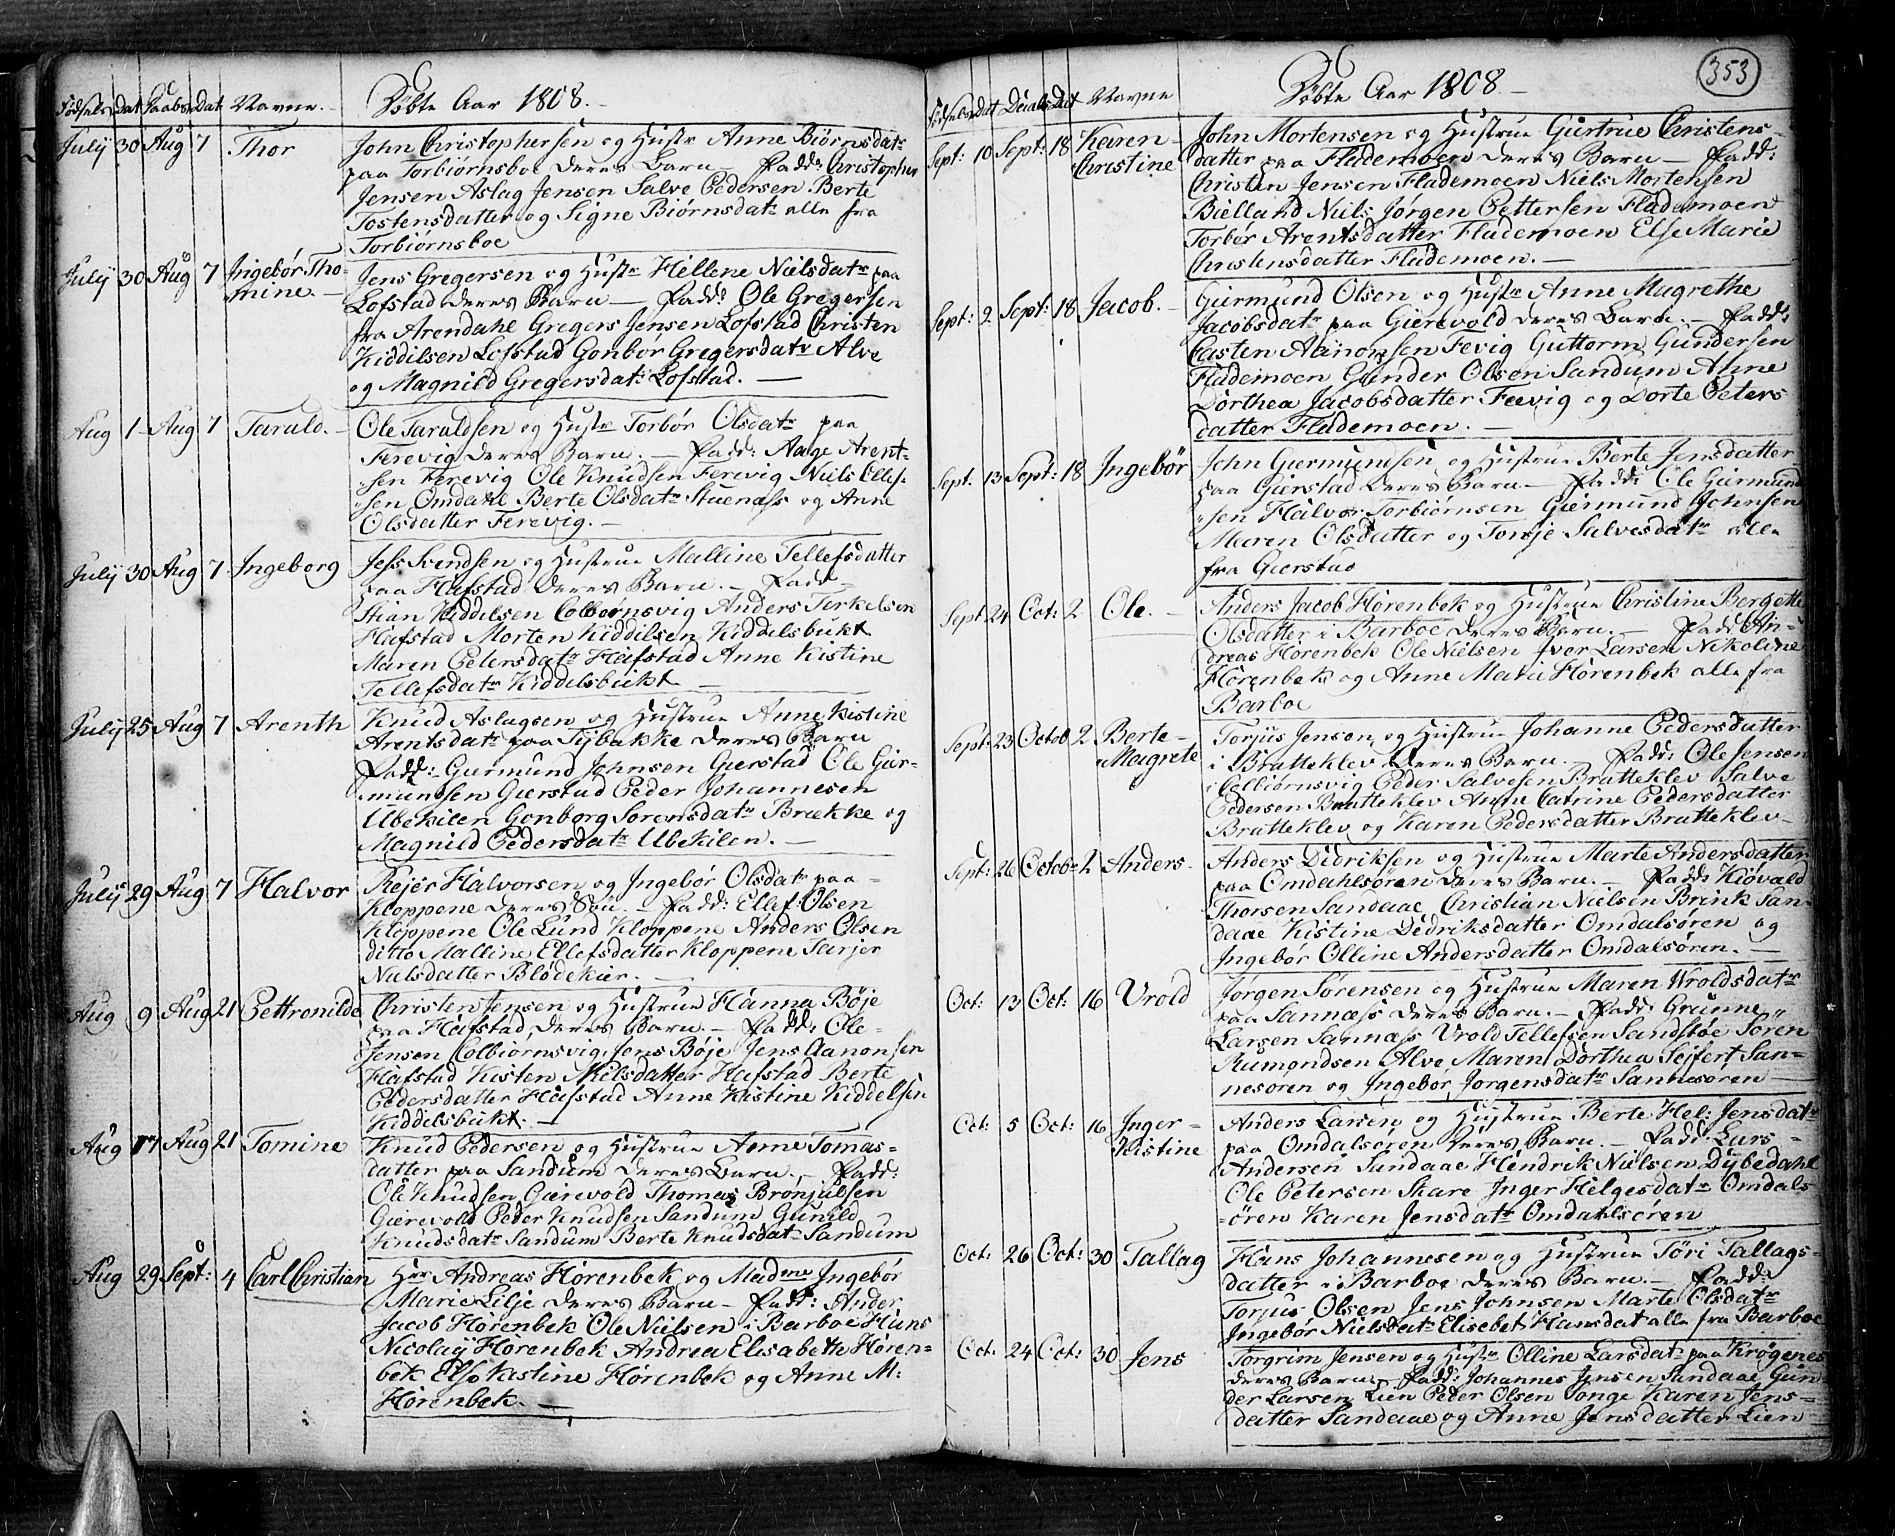 Fødsels dat Daabs dat Navne. Døbte Aar 1808.
July 30 Aug 7 Thor John Christophersen og Hustr Anne Biørnsdatr
paa Torbiørnsboe deres Barn — Fadd: Christopher
Jensen Aslag Jensen Salve Pedersen Berte
Tostensdatter og Signe Biørnsdatr alle fra
Torbiørnsboe
July 30 Aug 7 Ingebør Tho- Jens Gregersen og Hustr Hellene Nielsdatr paa
mine. — Lofstad deres Barn — Fadd: Ole Gregersen
fra Arendahl Gregers Jensen Lofstad Christen
Kiddilsen Lofstad Gonbør Gregersdatr Alve
og Magnild Gregersdatr Lofstad. —
Aug 1 Aug 7 Tarald. — Ole Taraldsen og Hustr Torbør Olsdatr paa
Ferevig deres Barn. — Fadd: Aage Arent-
sen Ferevig Ole Knudsen Ferevig Niels Ellef-
sen Omdahl Berte Olsdatr Stuenæss og Anne
Olsdatter Ferevig. —
July 30 Aug 7 Ingeborg Jess Svendsen og Hustrue Malline Tellefsdatter
paa Hafstad deres Barn. — Fadd —
Stian Kiddelsen Colbiornsvig Anders Terkelsen
Hafstad Morten Kiddilsen Kiddelsbukt
Maren Petersdatr Hafstad Anne Kistine
Tellefsdatr Kiddelsbukt —
July 25 Aug 7 Arenth Knud Aslagsen og Hustrue Anne Kistine
Arentsdatr paa Sybakke deres Barn
Fadd: Giermund Johnsen Gierstad Ole Gier-
mundsen Gierstad Peder Johannesen
Ubekilen Gonborg Sørensdatr Brække og
Magnild Pedersdatr Ubekilen. —
July 29 Aug 7 Halvor Rejer Halvorsen og Ingebør Olsdatr paa —
Kloppene deres Søn. — Fadd: Ellef Olsen
Kloppene Ole Lund Kloppene Anders Olsen
ditto Malline Ellefsdatter Kloppene Tarjer
Nielsdatter Blødekier. —
Aug 9 Aug 21 Pettronilde Christen Jensen og Hustrue Hanna Bøje
paa Hafstad deres Barn. — Fadd: Ole —
Jensen Colbiørnsvig Jens Bøje Jens Aanonsen
Hafstad Kisten Nielsdatter Hafstad Berte
Pedersdatter Hafstad Anne Kistine Kiddelsen
Kiddilsbukt. —
Aug 17 Aug 21 Tomine Knud Pedersen og Hustrue Anne Tomas-
datter paa Sandum deres Barn. — Fadd:
Ole Knudsen Gierevold Thomas Bronjulsen
Gierevold Peder Knudsen Sandum Gunild
Knudsdatr Sandum Berte Knudsdat Sandum
Aug 29 Sept: 4 Carl Christian Hrr Andreas Hørenbek og Madme Ingebør
Marie Lilje deres Barn — Fadd: Ander
Jacob Hørenbek Ole Nielsen i Barboe Hans
Nicolaÿ Hørenbek Andrea Elisabette Høren-
bek Else Kastine Hørenbek og Anne M:
Hørenbek. —
353
Fødsels dat Daabs Dat Navne Døbte Aar 1808 —
Sept: 10 Sept: 18 Karen John Mortensen og Hustrue Giertrue Christens-
Christine datter paa Flademoen deres Barn — Fadd:
Christen Jensen Flademoen Niels Mortensen
Bielland Niels Jørgen Pettersen Flademoen
Torbør Arentsdatter Flademoen Else Marie
Christensdatter Flademoen. —
Sept: 2 Sept: 18 Jacob. — Giermund Olsen og Hustr Anne Magrethe
Jacobsdatr paa Gierevold deres Barn. — Fadd:
Casten Aanonsen Fevig Guttorm Gundersen
Flademoen Gunder Olsen Sandum Anne
Dorthea Jacobsdatter Feevig og Dorte Peters
datter Flademoen. —
Sept: 13 Sept: 18 Ingebør John Giermundsen og Hustrue Berte Jensdatter
paa Gierstad deres Barn — Fadd: Ole Giermund
sen Halvor Torbiørnsen Giermund Johnsen
Maren Olsdatter og Tonje Salvesdatr alle
fra Gierstad
Sept 24 Oct: 2 Ole. — Anders Jacob Hørenbek og Hustrue Christine Bergette
Olsdatter i Barboe deres Barn. — Fadd An-
dreas Hørenbek Ole Nielsen Iver Larsen Nikoline
Hørenbek og Anne Marie Hørenbek alle fra
Barboe
Sept: 23 Octob 2 Berte — Torjüs Jensen og Hustrue Johanne Pedersdatter
Magrete i Bratteklev deres Barn. — Fadd: Ole Jensen
i Colbiørnsvig Peder Salvesen Bratteklev Salve
Pedersen Bratteklev Anne Catrine Pedersdatter
Bratteklev og Karen Pedersdatter Bratteklev —
Sept: 26 Octob 2 Anders. Anders Didriksen og Hustrue Marte Andersdatter
paa Omdahlsøren deres Barn. — Fadd: Kiøvald
Thorsen Sandaae Christian Nielsen Brink San-
daae Kistine Dedriksdatter Omdalsøren og
Ingebør Olline Andersdatter Omdalsøren. —
Oct: 13 Oct: 16 Vrold Jørgen Sørensen og Hustrue Maren Vroldsdatr
paa Sannæss deres Barn. — Fadd: Grunne
Larsen Sannæss Vrold Tellefsen Sandstøe Søren
Rumondsen Alve Maren Dorthea Sejfert San-
nesøren og Ingebør Jorgensdatr Sannesøren —
Oct: 5 Oct: 16 Inger — Anders Larsen og Hustrue Berte Hel: Jensdatr
Kistine paa Omdalsøren deres Barn. — Fadd: Lars —
Andersen Sandaae Hendrik Nielsen Dÿbedahl
Ole Petersen Skare Inger Helgesdatr Omdals-
øren Karen Jensdatr Omdahlsøren
Oct: 26 Oct: 30 Tallag Hans Johannesen og Hustrue Töri Tallags-
datter i Barboe deres Barn. — Fadd:
Torjus Olsen Jens Johnsen Marte Olsdatr
Ingebør Nielsdatr Elisebet Hansdat alle fra Barboe
Oct: 24 Oct: 30 Jens Torgrim Jensen og Hustr Olline Larsdatr paa Krøgenes
deres Barn — Fadd: Johannes Jensen Sandaae Gun-
der Larsen Lien Peder Olsen Songe Karen Jens-
datter Sandaae og Anne Jensdatter Lien